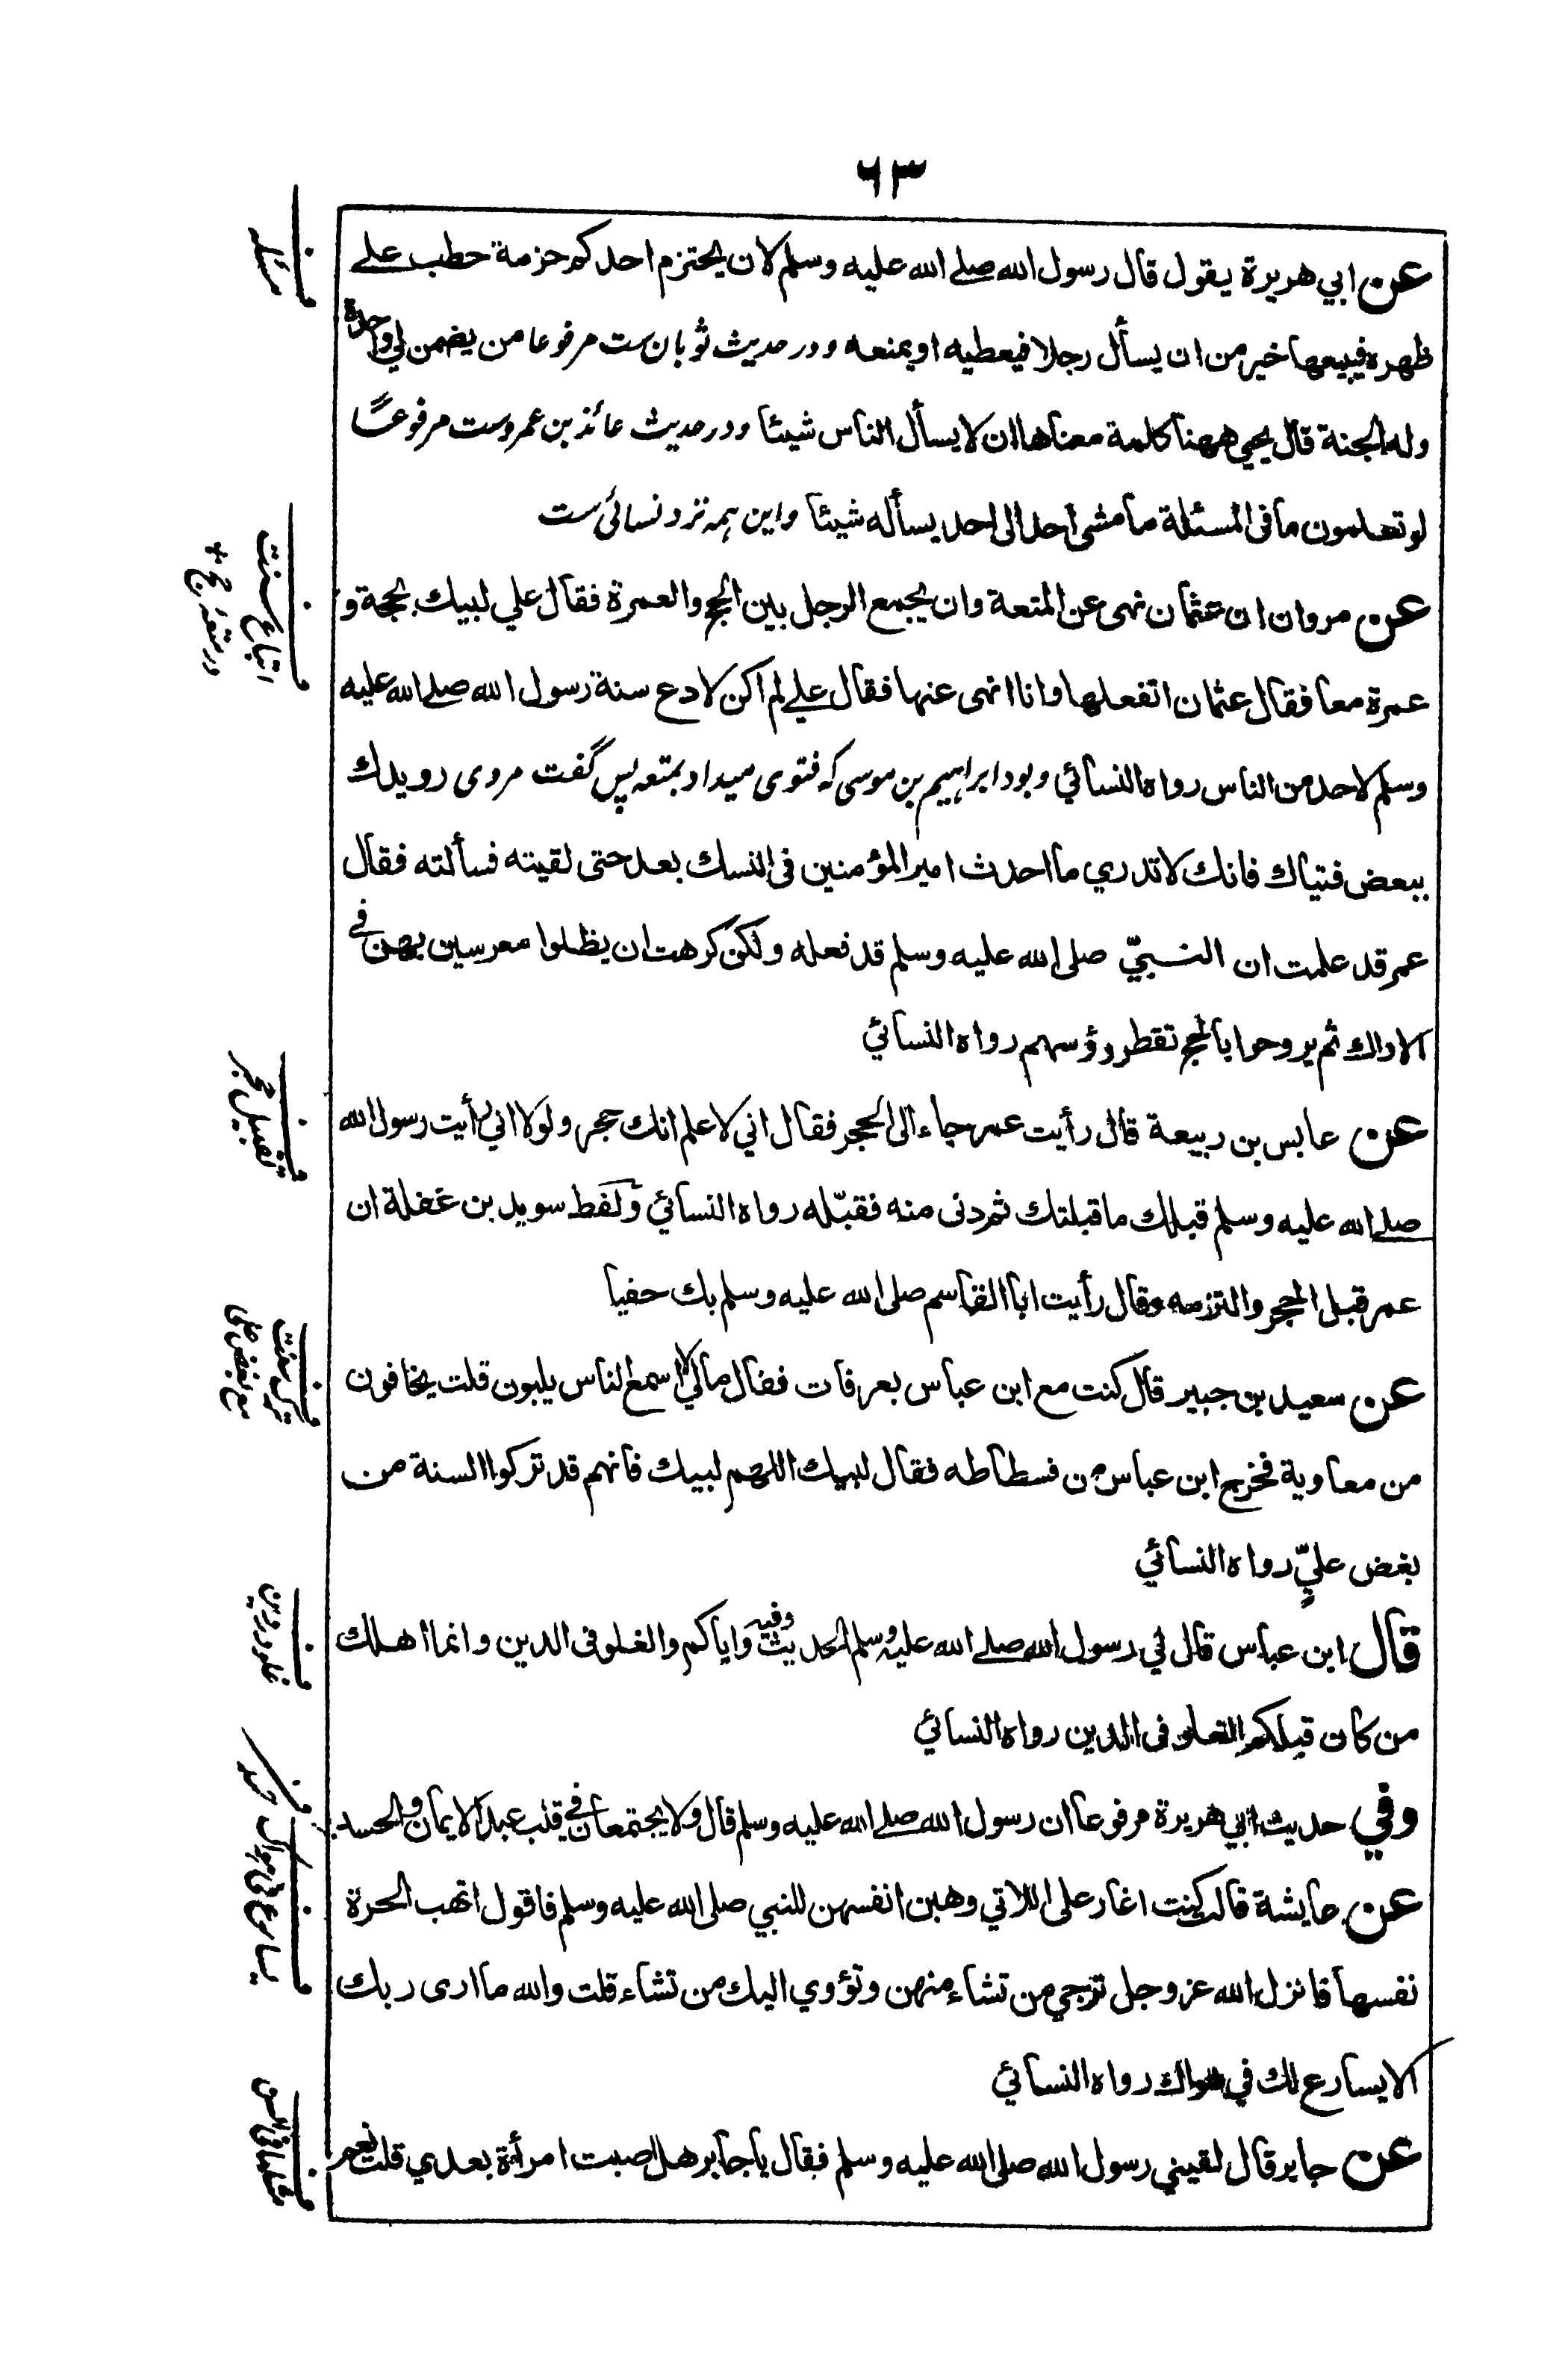 ٦٣
عن ابي هريرة يقول قال رسول الله صلے الله عليه وسلم لان يحتزم احدكم حزمة حطب علے
ظهره فيبيعها خير من ان يسأل رجلا فيعطيه او يمنعه ودر حديث ثوبان ست مرفوعا من يضمن لي واحدة
وله الجنة قال يحيي ههنا كلمة معناها ان لا يسأل الناس شيئا ودر حديث عائذ بن عمروست مرفوعًا
لو تعلمون ما في المسئلة ما مشى احد الى احد يسأله شيئا واين همه نزد نسائي ست
عن مروان ان عثمان نهى عن المتعة وان يجمع الرجل بين الحج والعمرة فقال علي لبيك بحجة و
عمرة معا فقال عثمان اتفعلها وانا انهى عنها فقال علے لم اكن لادع سنة رسول الله صلے الله عليه
وسلم لاحد من الناس رواه النسائي وبود ابراهيم بن موسى كه فتوى ميداد بمتعه پس گفت مردى رويدك
ببعض فتياك فانك لا تدري ما احدث امير المؤمنين في النسك بعد حتى لقيته فسألته فقال
عمر قد علمت ان النبيّ صلى الله عليه وسلم قد فعله ولكن كرهت ان يظلوا معرسين بهن في
الاراك ثم يروحوا بالحج تقطر رؤسهم رواه النسائي
عن عابس بن ربيعة قال رأيت عمر جاء الى الحجر فقال اني لاعلم انك حجر ولولا اني رأيت رسول الله
صلے الله عليه وسلم قبلك ما قبلتك ثم دنى منه فقبّله رواه النسائي ولفط سويد بن غفلة ان
عمر قبل الحجر والتزمه وقال رأيت ابا القاسم صلى الله عليه وسلم بك حفيا
عن سعيد بن جبير قال كنت مع ابن عباس بعرفات فقال مالي لا اسمع الناس يلبون قلت يخافون
من معاوية فخرج ابن عباس من فسطاطه فقال لبيك اللهم لبيك فانهم قد تركوا السنة من
بغض عليّ رواه النسائي
قال ابن عباس قال لي رسول الله صلے الله عليه وسلم الحديث وفيه واياكم والغلو في الدين وانما اهلك
من كان قبلكم الغلو في الدين رواه النسائي
وفي حديث ابي هريرة مرفوعا ان رسول الله صلے الله عليه وسلم قال ولا يجتمعان في قلب عبد الايمان والحسد
عن عايشة قالت كنت اغار على اللاتي وهبن انفسهن للنبي صلى الله عليه وسلم فاقول اتهب الحرة
نفسها فانزل الله عز وجل ترجي من تشاء منهن وتؤوي اليك من تشاء قلت والله ما ارى ربك
الا يسارع لك في هواك رواه النسائي
عن جابر قال لقيني رسول الله صلى الله عليه وسلم فقال يا جابر هل اصبت امرأة بعدي قلت نعم
اتباع سنت
در متعهٔ حج
تقبيل حجر
ترك سنت
غلو در دين